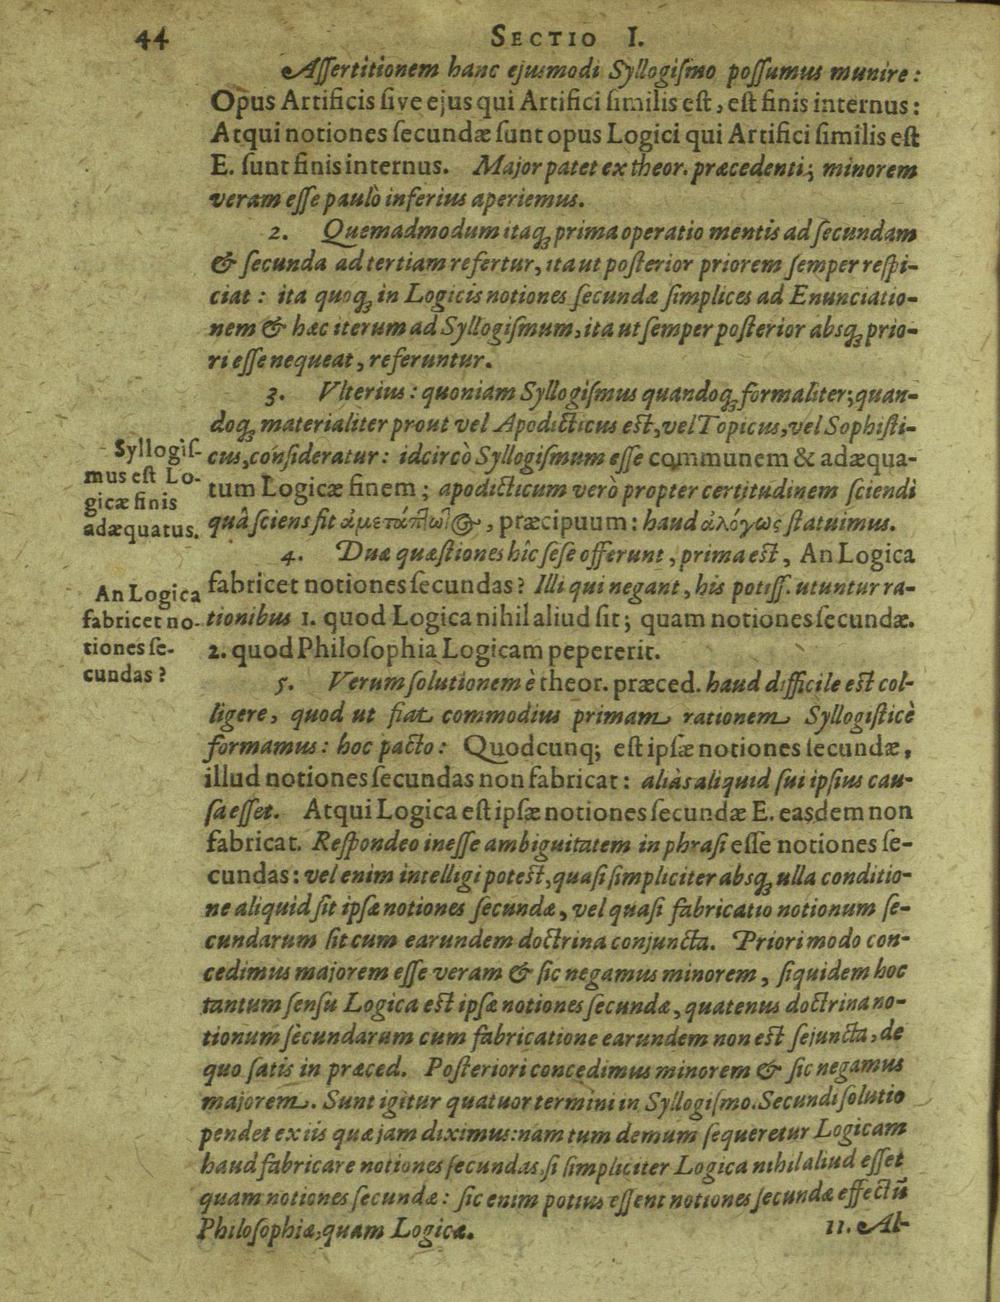 44 SECTIO I.
Assertitionem hanc ejusmodi Syllogiſmo poſſumus munire:
Opus Artificis ſive ejus qui Artifici ſimilis eſt, eſt finis internus:
Atqui notiones ſecundæ ſunt opus Logici qui Artifici ſimilis eſt
E. ſunt finis internus. Major patet ex theor. præcedenti; minorem
veram eſſe paulò inferius aperiemus.
2. Quemadmodum itaq; prima operatio mentis ad ſecundam
& ſecunda ad tertiam refertur, ita ut poſterior priorem ſemper reſpi-
ciat: ita quoq; in Logicis notiones ſecundæ ſimplices ad Enunciatio-
nem & hæc iterum ad Syllogiſmum, ita ut ſemper poſterior absq; prio-
ri eſſe nequeat, referuntur.
3. Vlterius: quoniam Syllogiſmus quandoq; formaliter; quan-
doq; materialiter prout vel Apodicticus eſt, vel Topicus, vel Sophiſti-
cus, conſideratur: idcircò Syllogiſmum eſſe communem & adæqua-
tum Logicæ finem; apodicticum verò propter certitudinem ſciendi
quâ ſciens fit ἀμετάπτωτος, præcipuum: haud ἀλόγως ſtatuimus.
Syllogiſ-
mus eſt Lo-
gicæ finis
adæquatus.
4. Duæ quæſtiones hîc ſeſe offerunt, prima eſt, An Logica
fabricet notiones ſecundas? Illi qui negant, his potiſſ. utuntur ra-
tionibus 1. quod Logica nihil aliud ſit; quam notiones ſecundæ.
2. quod Philoſophia Logicam pepererit.
An Logica
fabricet no-
tiones ſe-
cundas?
5. Verum ſolutionem è theor. præced. haud difficile eſt col-
ligere, quod ut fiat commodius primam rationem Syllogiſticè
formamus: hoc pacto: Quodcunq; eſt ipſæ notiones ſecundæ,
illud notiones ſecundas non fabricat: aliàs aliquid ſui ipſius cau-
ſa eſſet. Atqui Logica eſt ipſæ notiones ſecundæ E. easdem non
fabricat. Reſpondeo ineſſe ambiguitatem in phraſi eſſe notiones ſe-
cundas: vel enim intelligi poteſt, quaſi ſimpliciter absq; ulla conditio-
ne aliquid ſit ipſæ notiones ſecundæ, vel quaſi fabricatio notionum ſe-
cundarum ſit cum earundem doctrina conjuncta. Priori modo con-
cedimus majorem eſſe veram & ſic negamus minorem, ſiquidem hoc
tantum ſenſu Logica eſt ipſæ notiones ſecundæ, quatenus doctrina no-
tionum ſecundarum cum fabricatione earundem non eſt ſejuncta, de
quo ſatis in præced. Poſteriori concedimus minorem & ſic negamus
majorem. Sunt igitur quatuor termini in Syllogiſmo. Secundi ſolutio
pendet ex iis quæ jam diximus: nam tum demum ſequeretur Logicam
haud fabricare notiones ſecundas, ſi ſimpliciter Logica nihil aliud eſſet
quam notiones ſecundæ: ſic enim potius eſſent notiones ſecundæ effectū
Philoſophiæ, quam Logicæ.
11. Al-